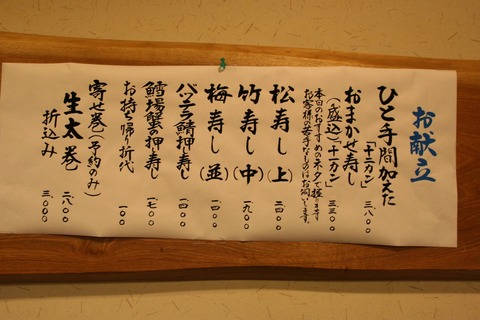 お献立
ひと手間加えた
「十二カン」 三、八〇〇
おまかせ寿し
(盛込)「十一カン」 三、三〇〇
本日のおすすめのネタで握ります
お客様の苦手なものはお伺いします。
松寿し(上) 二、四〇〇
竹寿し(中) 一、九〇〇
梅寿し(並) 一、四〇〇
バッテラ鯖押し寿し 一、四〇〇
鱈場蟹の押し寿し 一、七〇〇
お持ち帰り折代 一〇〇
寄せ巻(予約のみ)
生太巻 二、八〇〇
折込み 三、〇〇〇